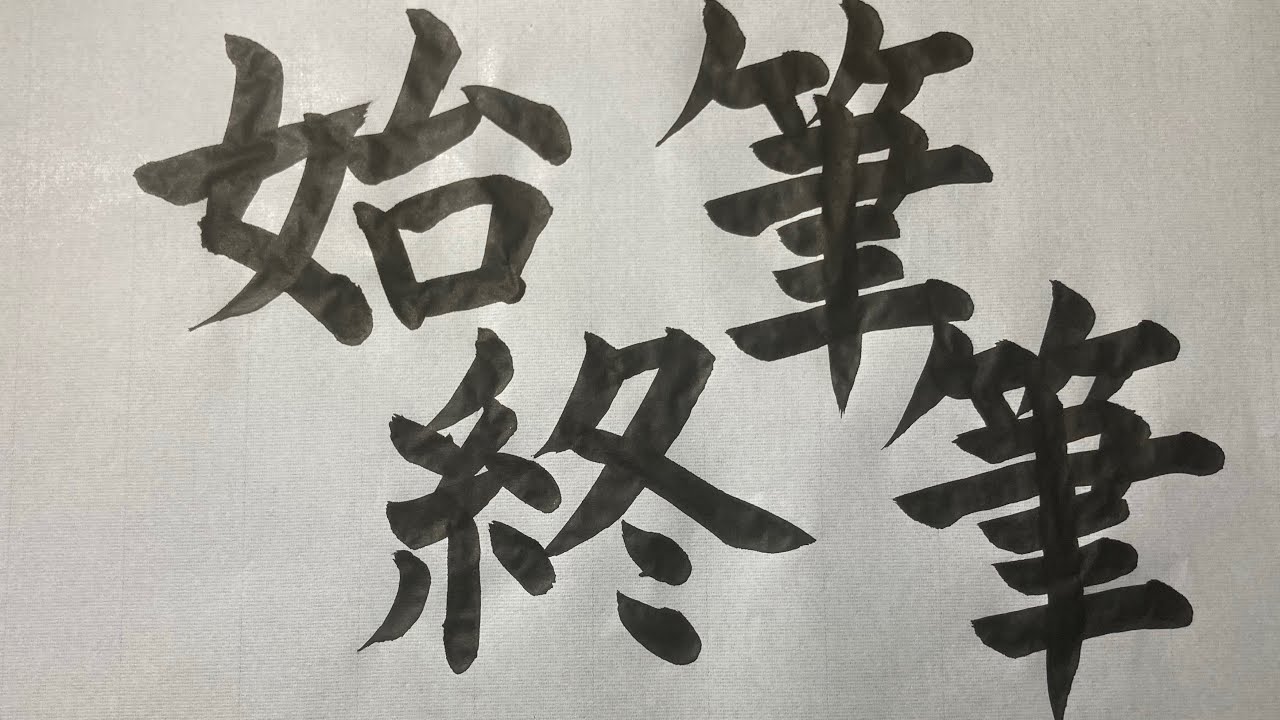 始筆
終筆